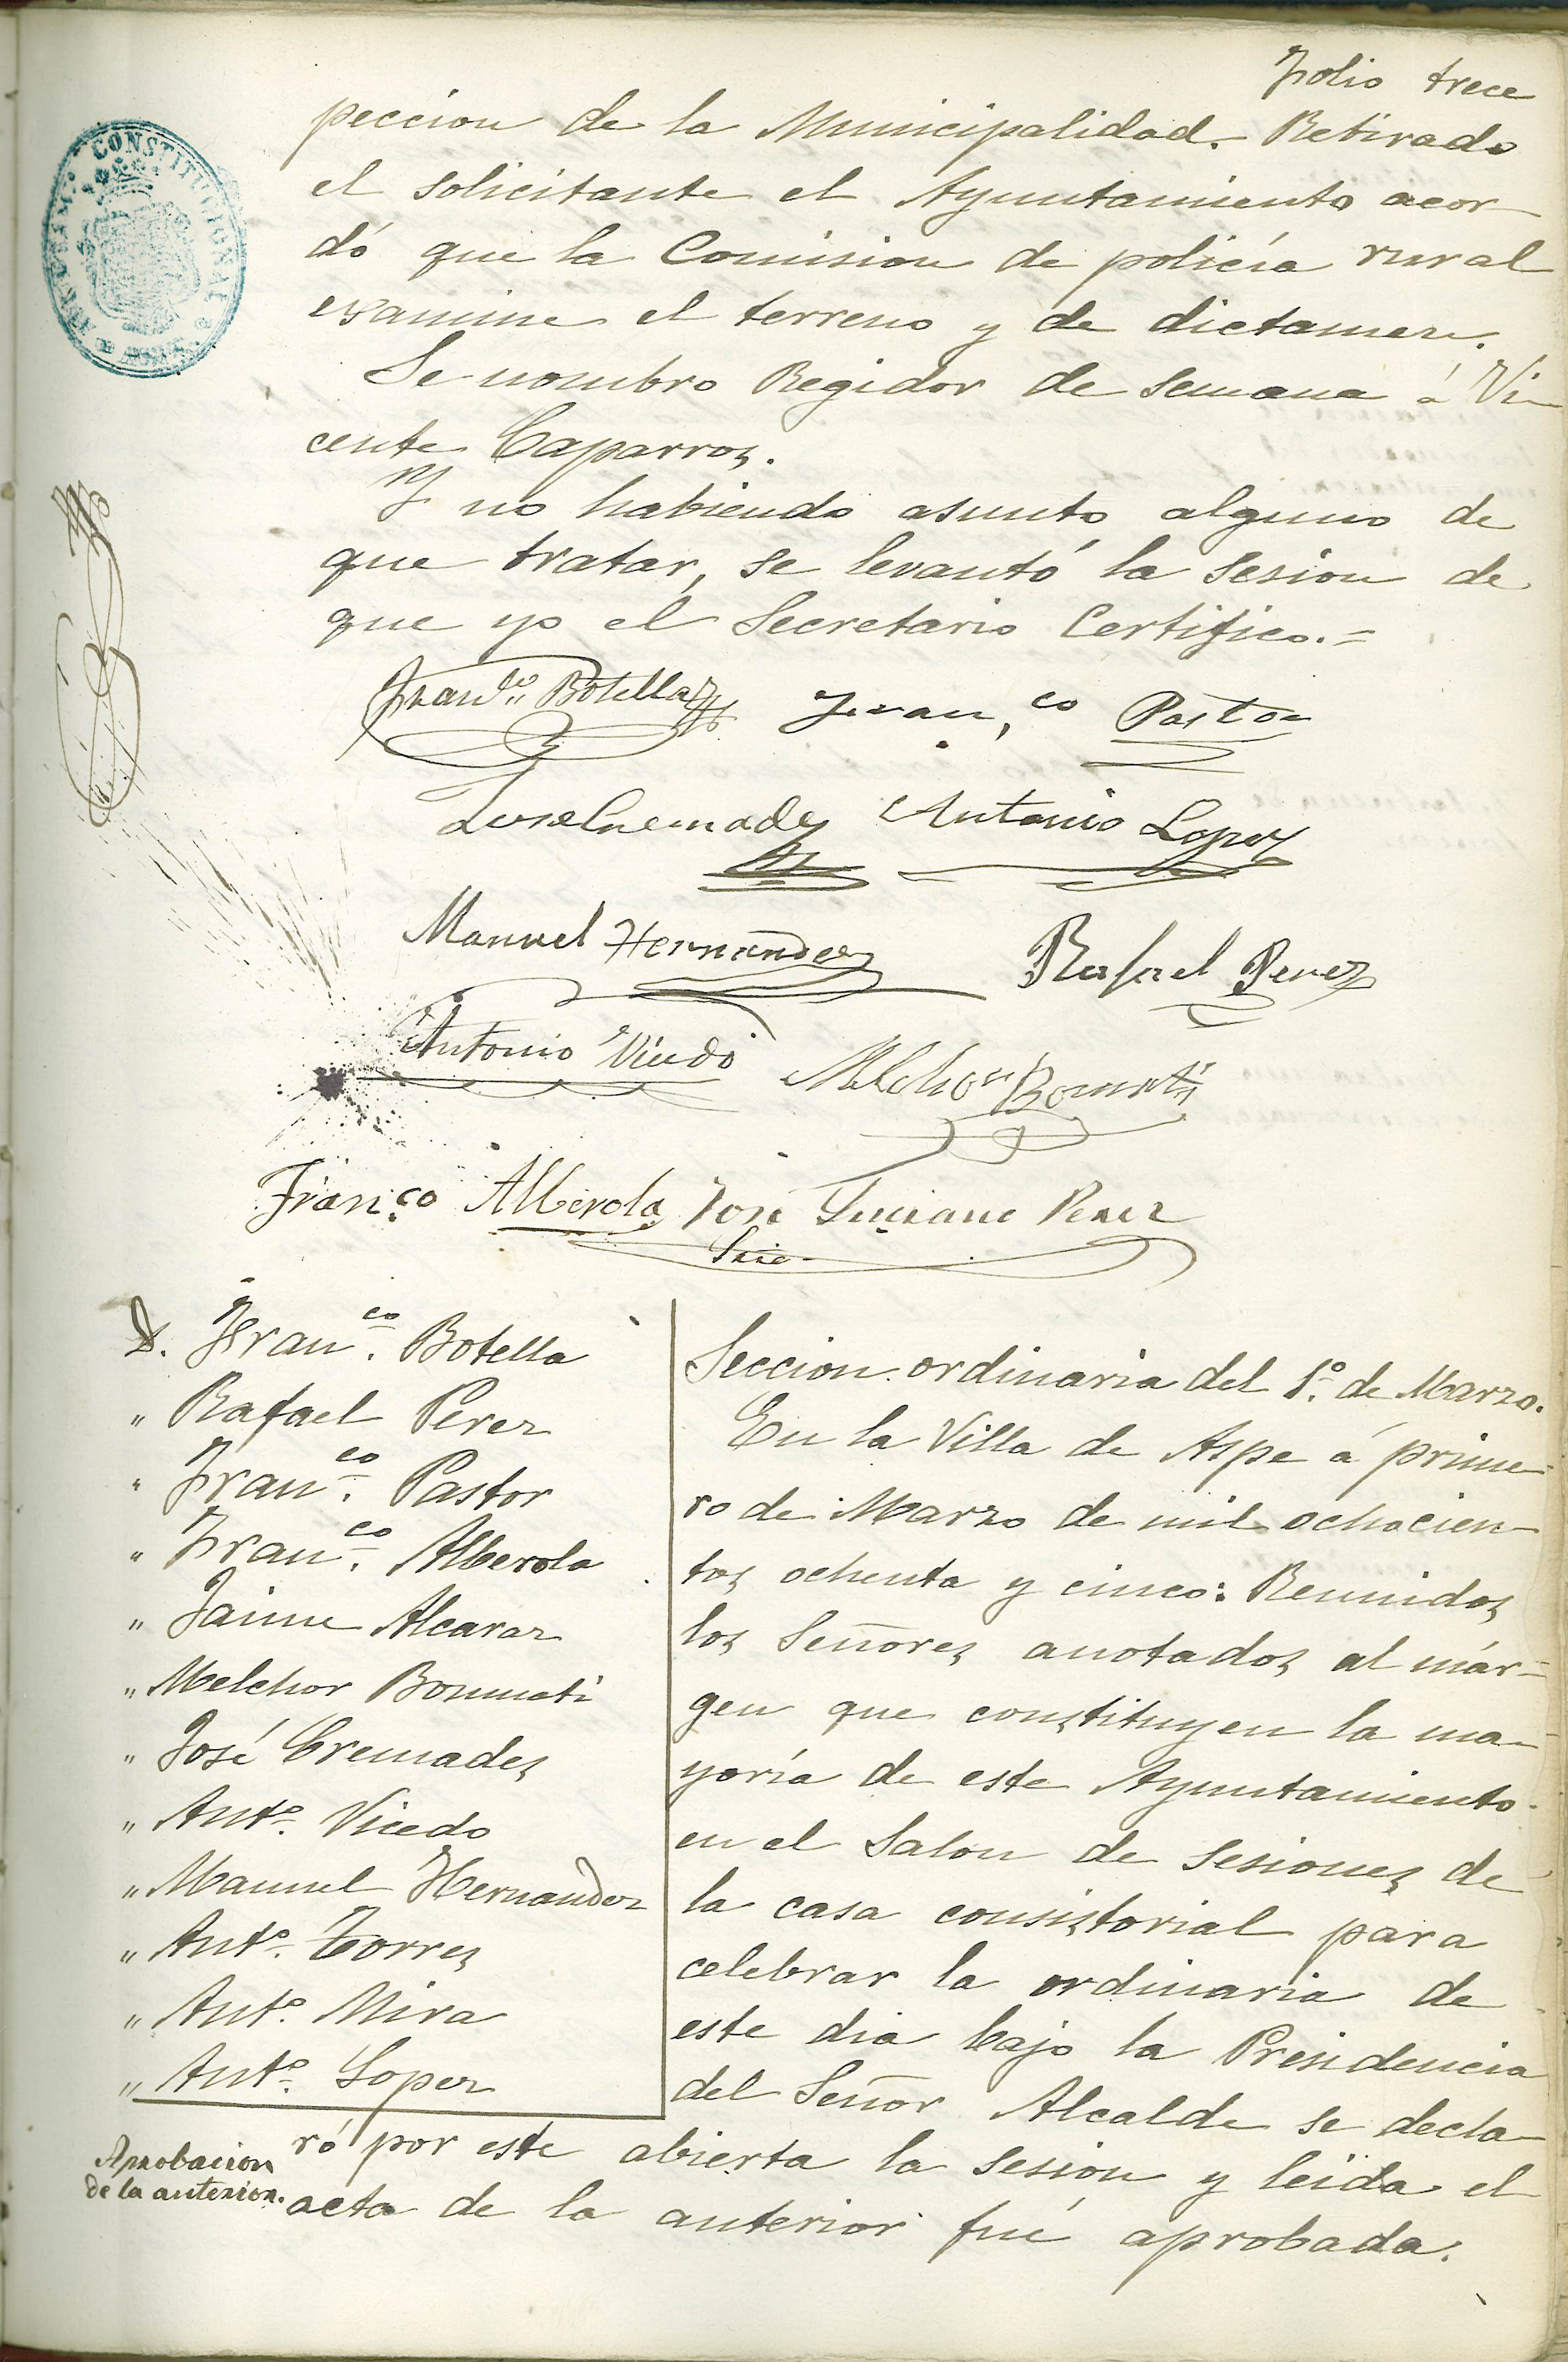 Folio trece
peccion de la Municipalidad. Retirado
el solicitante el Ayuntamiento acor
dó que la Comision de policía rural
examine el terreno y de dictamen.
Se nombro Regidor de semana á Vi-
cente Caparros.
Y no habiendo asunto alguno de
que tratar, se levantó la Sesion de
que yo el Secretario Certifico.=
Franco. Botella
Fran,co Pastor
Jose Cremades
Antonio Lopez
Manuel Hernandez
Rafael Perez
Antonio Vicedo
Melchor Bonmati
Fran.co Alberola
José Luciano Perez
Srio
CONSTITUCIONAL
D. Franco. Botella
" Rafael Perez
" Franco. Pastor
" Franco. Alberola
" Jaime Alcaraz
" Melchor Bonmati
" José Cremades
" Anto. Vicedo
" Manuel Hernandez
" Anto. Torres
" Anto. Mira
" Anto. Lopez
Seccion ordinaria del 1º. de Marzo.
En la Villa de Aspe á prime-
ro de Marzo de mil ochocien-
tos ochenta y cinco: Reunidos
los Señores anotados al már-
gen que constituyen la ma-
yoría de este Ayuntamiento
en el Salon de Sesiones de
la casa consistorial para
celebrar la ordinaria de
este dia bajo la Presidencia
del Señor Alcalde se decla-
ró por este abierta la Sesion y leida el
Aprobacion
de la anterior.
acta de la anterior fué aprobada.